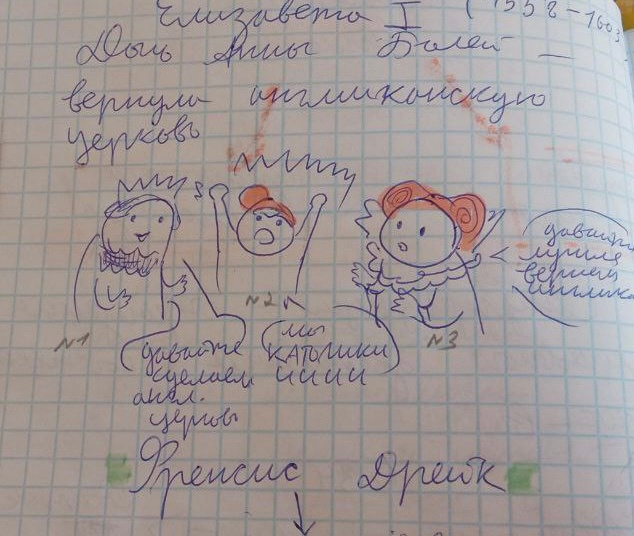 Елизавета I (1558-1603
Дочь Анны Болейн —
вернула англиканскую
церковь
№1
давайте
сделаем
англ.
церковь
№2
мы
КАТОЛИКИ
ИИИИ
№3
давайте
лучше
вернем
англика
Френсис Дрейк